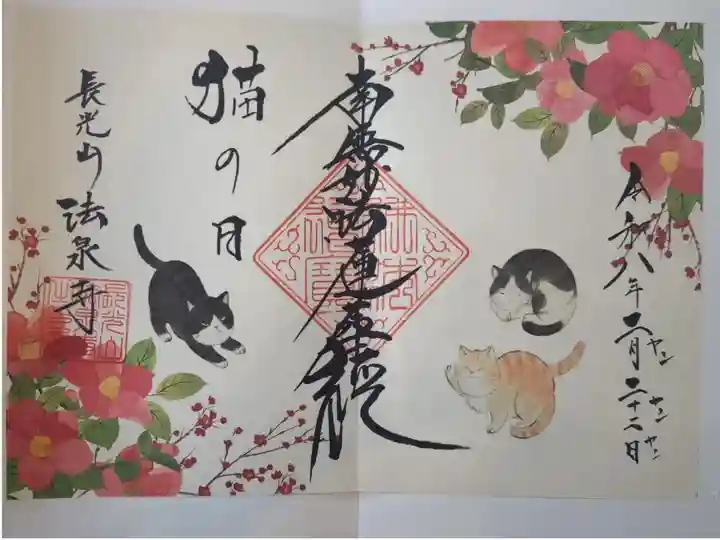 令和八年二月二十二日
ヤン
ヤン
ヤン
南無妙法蓮華経
猫の日
長光山 法泉寺